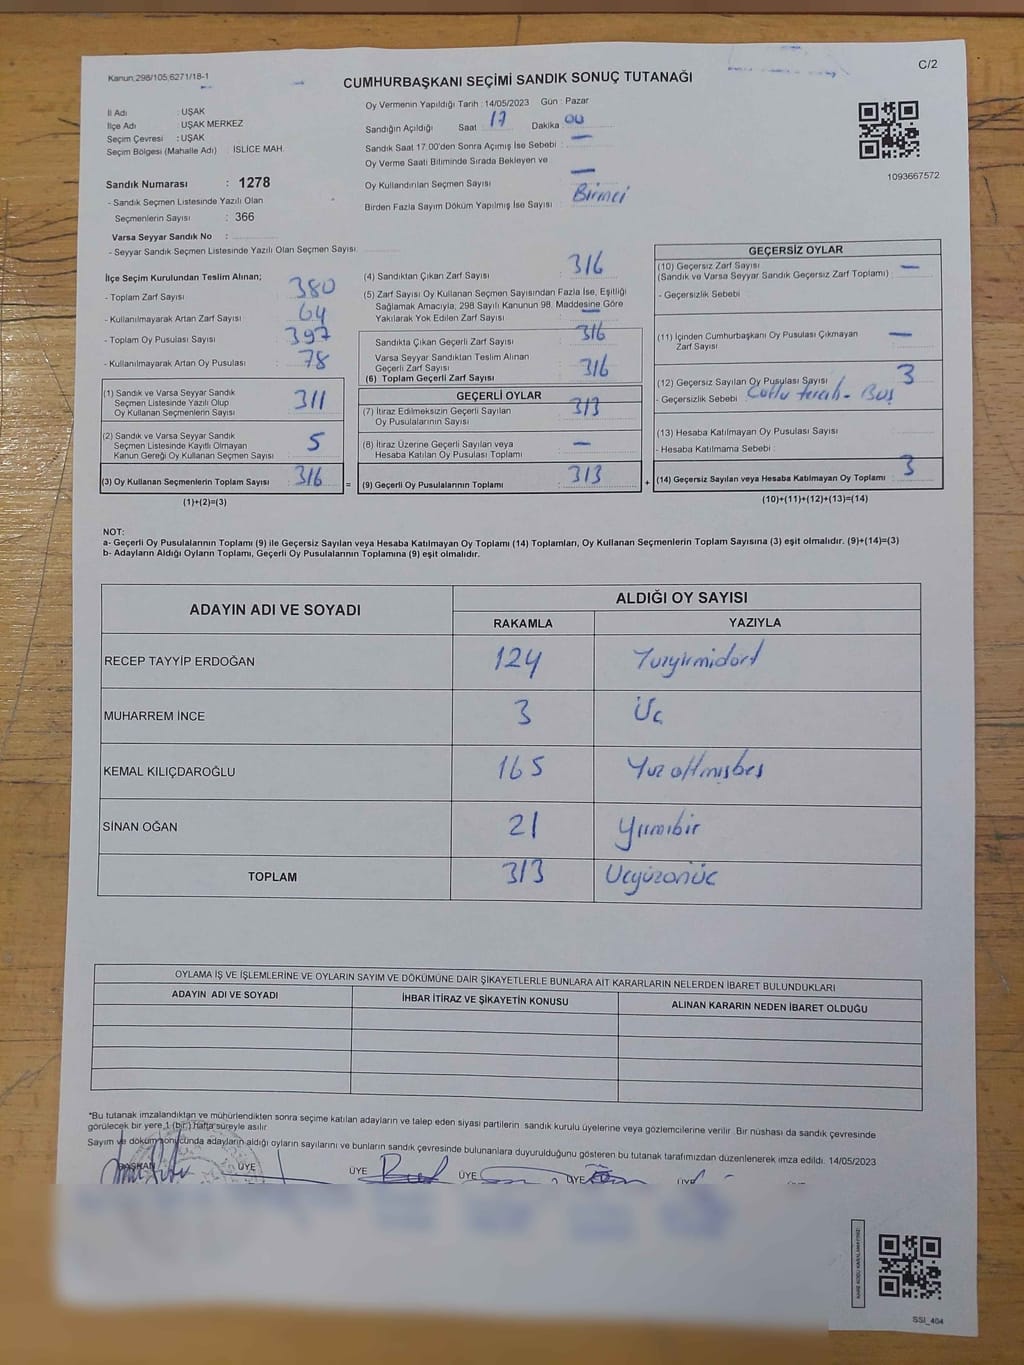 Kanun:298/105;6271/18-1
C/2
CUMHURBAŞKANI SEÇİMİ SANDIK SONUÇ TUTANAĞI
İl Adı : UŞAK
İlçe Adı : UŞAK MERKEZ
Seçim Çevresi : UŞAK
Seçim Bölgesi (Mahalle Adı) : İSLİCE MAH.
Sandık Numarası : 1278
- Sandık Seçmen Listesinde Yazılı Olan
Seçmenlerin Sayısı : 366
Varsa Seyyar Sandık No :
- Seyyar Sandık Seçmen Listesinde Yazılı Olan Seçmen Sayısı
Oy Vermenin Yapıldığı Tarih : 14/05/2023 Gün : Pazar
Sandığın Açıldığı Saat 17 Dakika 00
Sandık Saat 17.00'den Sonra Açımış İse Sebebi : —
Oy Verme Saati Bitiminde Sırada Bekleyen ve
Oy Kullandırılan Seçmen Sayısı —
Birden Fazla Sayım Döküm Yapılmış İse Sayısı : Birinci
1093667572
İlçe Seçim Kurulundan Teslim Alınan;
- Toplam Zarf Sayısı : 380
- Kullanılmayarak Artan Zarf Sayısı : 64
- Toplam Oy Pusulası Sayısı : 397
- Kullanılmayarak Artan Oy Pusulası : 78
(1) Sandık ve Varsa Seyyar Sandık
Seçmen Listesinde Yazılı Olup
Oy Kullanan Seçmenlerin Sayısı : 311
(2) Sandık ve Varsa Seyyar Sandık
Seçmen Listesinde Kayıtlı Olmayan
Kanun Gereği Oy Kullanan Seçmen Sayısı : 5
(3) Oy Kullanan Seçmenlerin Toplam Sayısı : 316 =
(1)+(2)=(3)
(4) Sandıktan Çıkan Zarf Sayısı : 316
(5) Zarf Sayısı Oy Kullanan Seçmen Sayısından Fazla İse, Eşitliği
Sağlamak Amacıyla; 298 Sayılı Kanunun 98. Maddesine Göre
Yakılarak Yok Edilen Zarf Sayısı : —
Sandıkta Çıkan Geçerli Zarf Sayısı : 316
Varsa Seyyar Sandıktan Teslim Alınan
Geçerli Zarf Sayısı : 316
(6) Toplam Geçerli Zarf Sayısı
GEÇERLİ OYLAR
(7) İtiraz Edilmeksizin Geçerli Sayılan
Oy Pusulalarının Sayısı : 313
(8) İtiraz Üzerine Geçerli Sayılan veya
Hesaba Katılan Oy Pusulası Toplamı : —
(9) Geçerli Oy Pusulalarının Toplamı : 313 +
GEÇERSİZ OYLAR
(10) Geçersiz Zarf Sayısı —
(Sandık ve Varsa Seyyar Sandık Geçersiz Zarf Toplamı) :
- Geçersizlik Sebebi :
(11) İçinden Cumhurbaşkanı Oy Pusulası Çıkmayan
Zarf Sayısı : —
(12) Geçersiz Sayılan Oy Pusulası Sayısı : 3
- Geçersizlik Sebebi : Çoklu tercih - Boş
(13) Hesaba Katılmayan Oy Pusulası Sayısı :
- Hesaba Katılmama Sebebi :
(14) Geçersiz Sayılan veya Hesaba Katılmayan Oy Toplamı : 3
(10)+(11)+(12)+(13)=(14)
NOT:
a- Geçerli Oy Pusulalarının Toplamı (9) ile Geçersiz Sayılan veya Hesaba Katılmayan Oy Toplamı (14) Toplamları, Oy Kullanan Seçmenlerin Toplam Sayısına (3) eşit olmalıdır. (9)+(14)=(3)
b- Adayların Aldığı Oyların Toplamı, Geçerli Oy Pusulalarının Toplamına (9) eşit olmalıdır.
ADAYIN ADI VE SOYADI
ALDIĞI OY SAYISI
RAKAMLA YAZIYLA
RECEP TAYYİP ERDOĞAN 124 Yuzyirmidört
MUHARREM İNCE 3 Üç
KEMAL KILIÇDAROĞLU 165 Yuz altmışbeş
SİNAN OĞAN 21 Yirmibir
TOPLAM 313 Uçyüzonüç
OYLAMA İŞ VE İŞLEMLERİNE VE OYLARIN SAYIM VE DÖKÜMÜNE DAİR ŞİKAYETLERLE BUNLARA AİT KARARLARIN NELERDEN İBARET BULUNDUKLARI
ADAYIN ADI VE SOYADI İHBAR İTİRAZ VE ŞİKAYETİN KONUSU ALINAN KARARIN NEDEN İBARET OLDUĞU
*Bu tutanak imzalandıktan ve mühürlendikten sonra seçime katılan adayların ve talep eden siyasi partilerin sandık kurulu üyelerine veya gözlemcilerine verilir. Bir nüshası da sandık çevresinde
görülecek bir yere 1 (bir) hafta süreyle asılır
Sayım ve döküm sonucunda adayların aldığı oyların sayılarını ve bunların sandık çevresinde bulunanlara duyurulduğunu gösteren bu tutanak tarafımızdan düzenlenerek imza edildi. 14/05/2023
BAŞKAN ÜYE ÜYE ÜYE ÜYE ÜYE
SSI_404